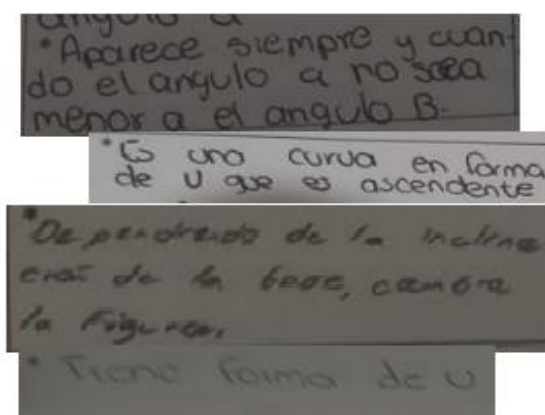 angulo a
• Aparece siempre y cuan-
do el angulo a no sea
menor a el angulo B.
• Es una curva en forma
de U que es ascendente
• Dependiendo de la inclina
cion de la base, cambia
la figura.
• Tiene forma de U